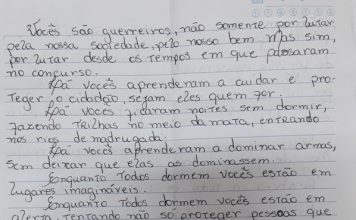 Vocês são guerreiros, não somente por lutar
pela nossa sociedade, pelo nosso bem mas sim,
por lutar desde os tempos em que passaram
no concurso.
Lá vocês aprenderam a cuidar e pro-
teger o cidadão, sejam eles quem for.
Lá vocês ficaram noites sem dormir,
fazendo trilhas no meio da mata, entrando
nos rios de madrugada.
Lá vocês aprenderam a dominar armas,
sem deixar que elas as dominassem.
Enquanto todos dormem vocês estão em
lugares imagináveis.
Enquanto todos dormem vocês estão em
alerta, tentando não só proteger pessoas que